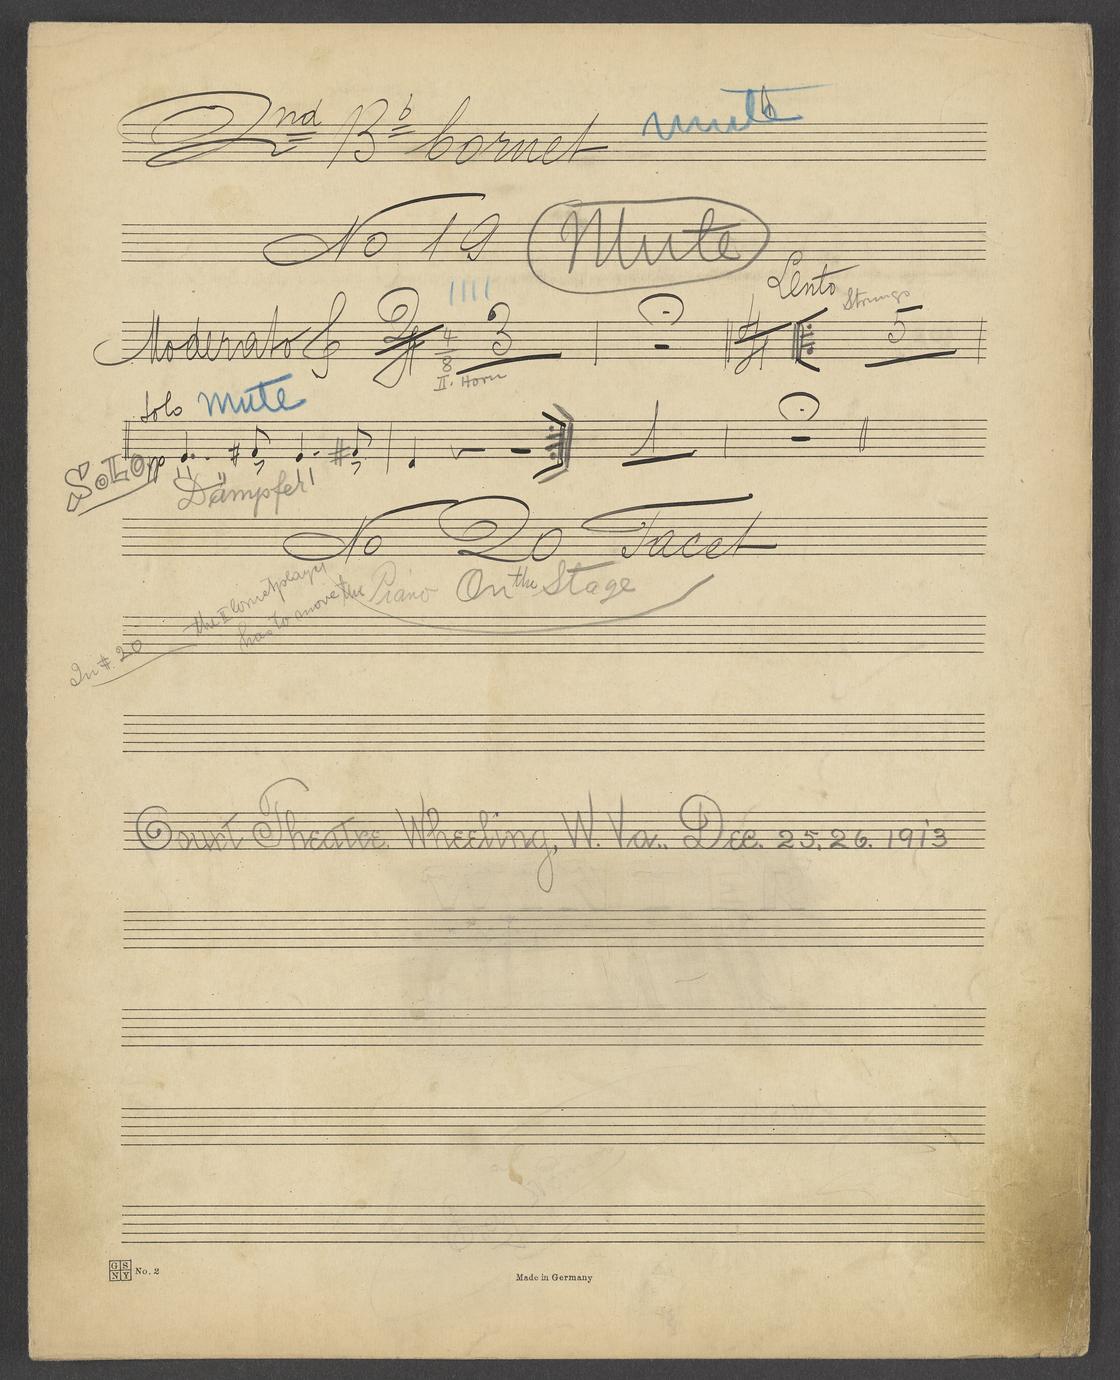 2nd Bb Cornet mute
No 19 Mute
Lento
Strings
Moderato 2/4 4/8 3 4/4 5
II. Horn
Solo mute
SOLO pp 1
Dämpfer!
No 20 Tacet
In #. 20 the II Cornetplayer has to move the Piano On the Stage
Court Theatre Wheeling, W. Va., Dec. 25, 26. 1913
GS NY No. 2
Made in Germany